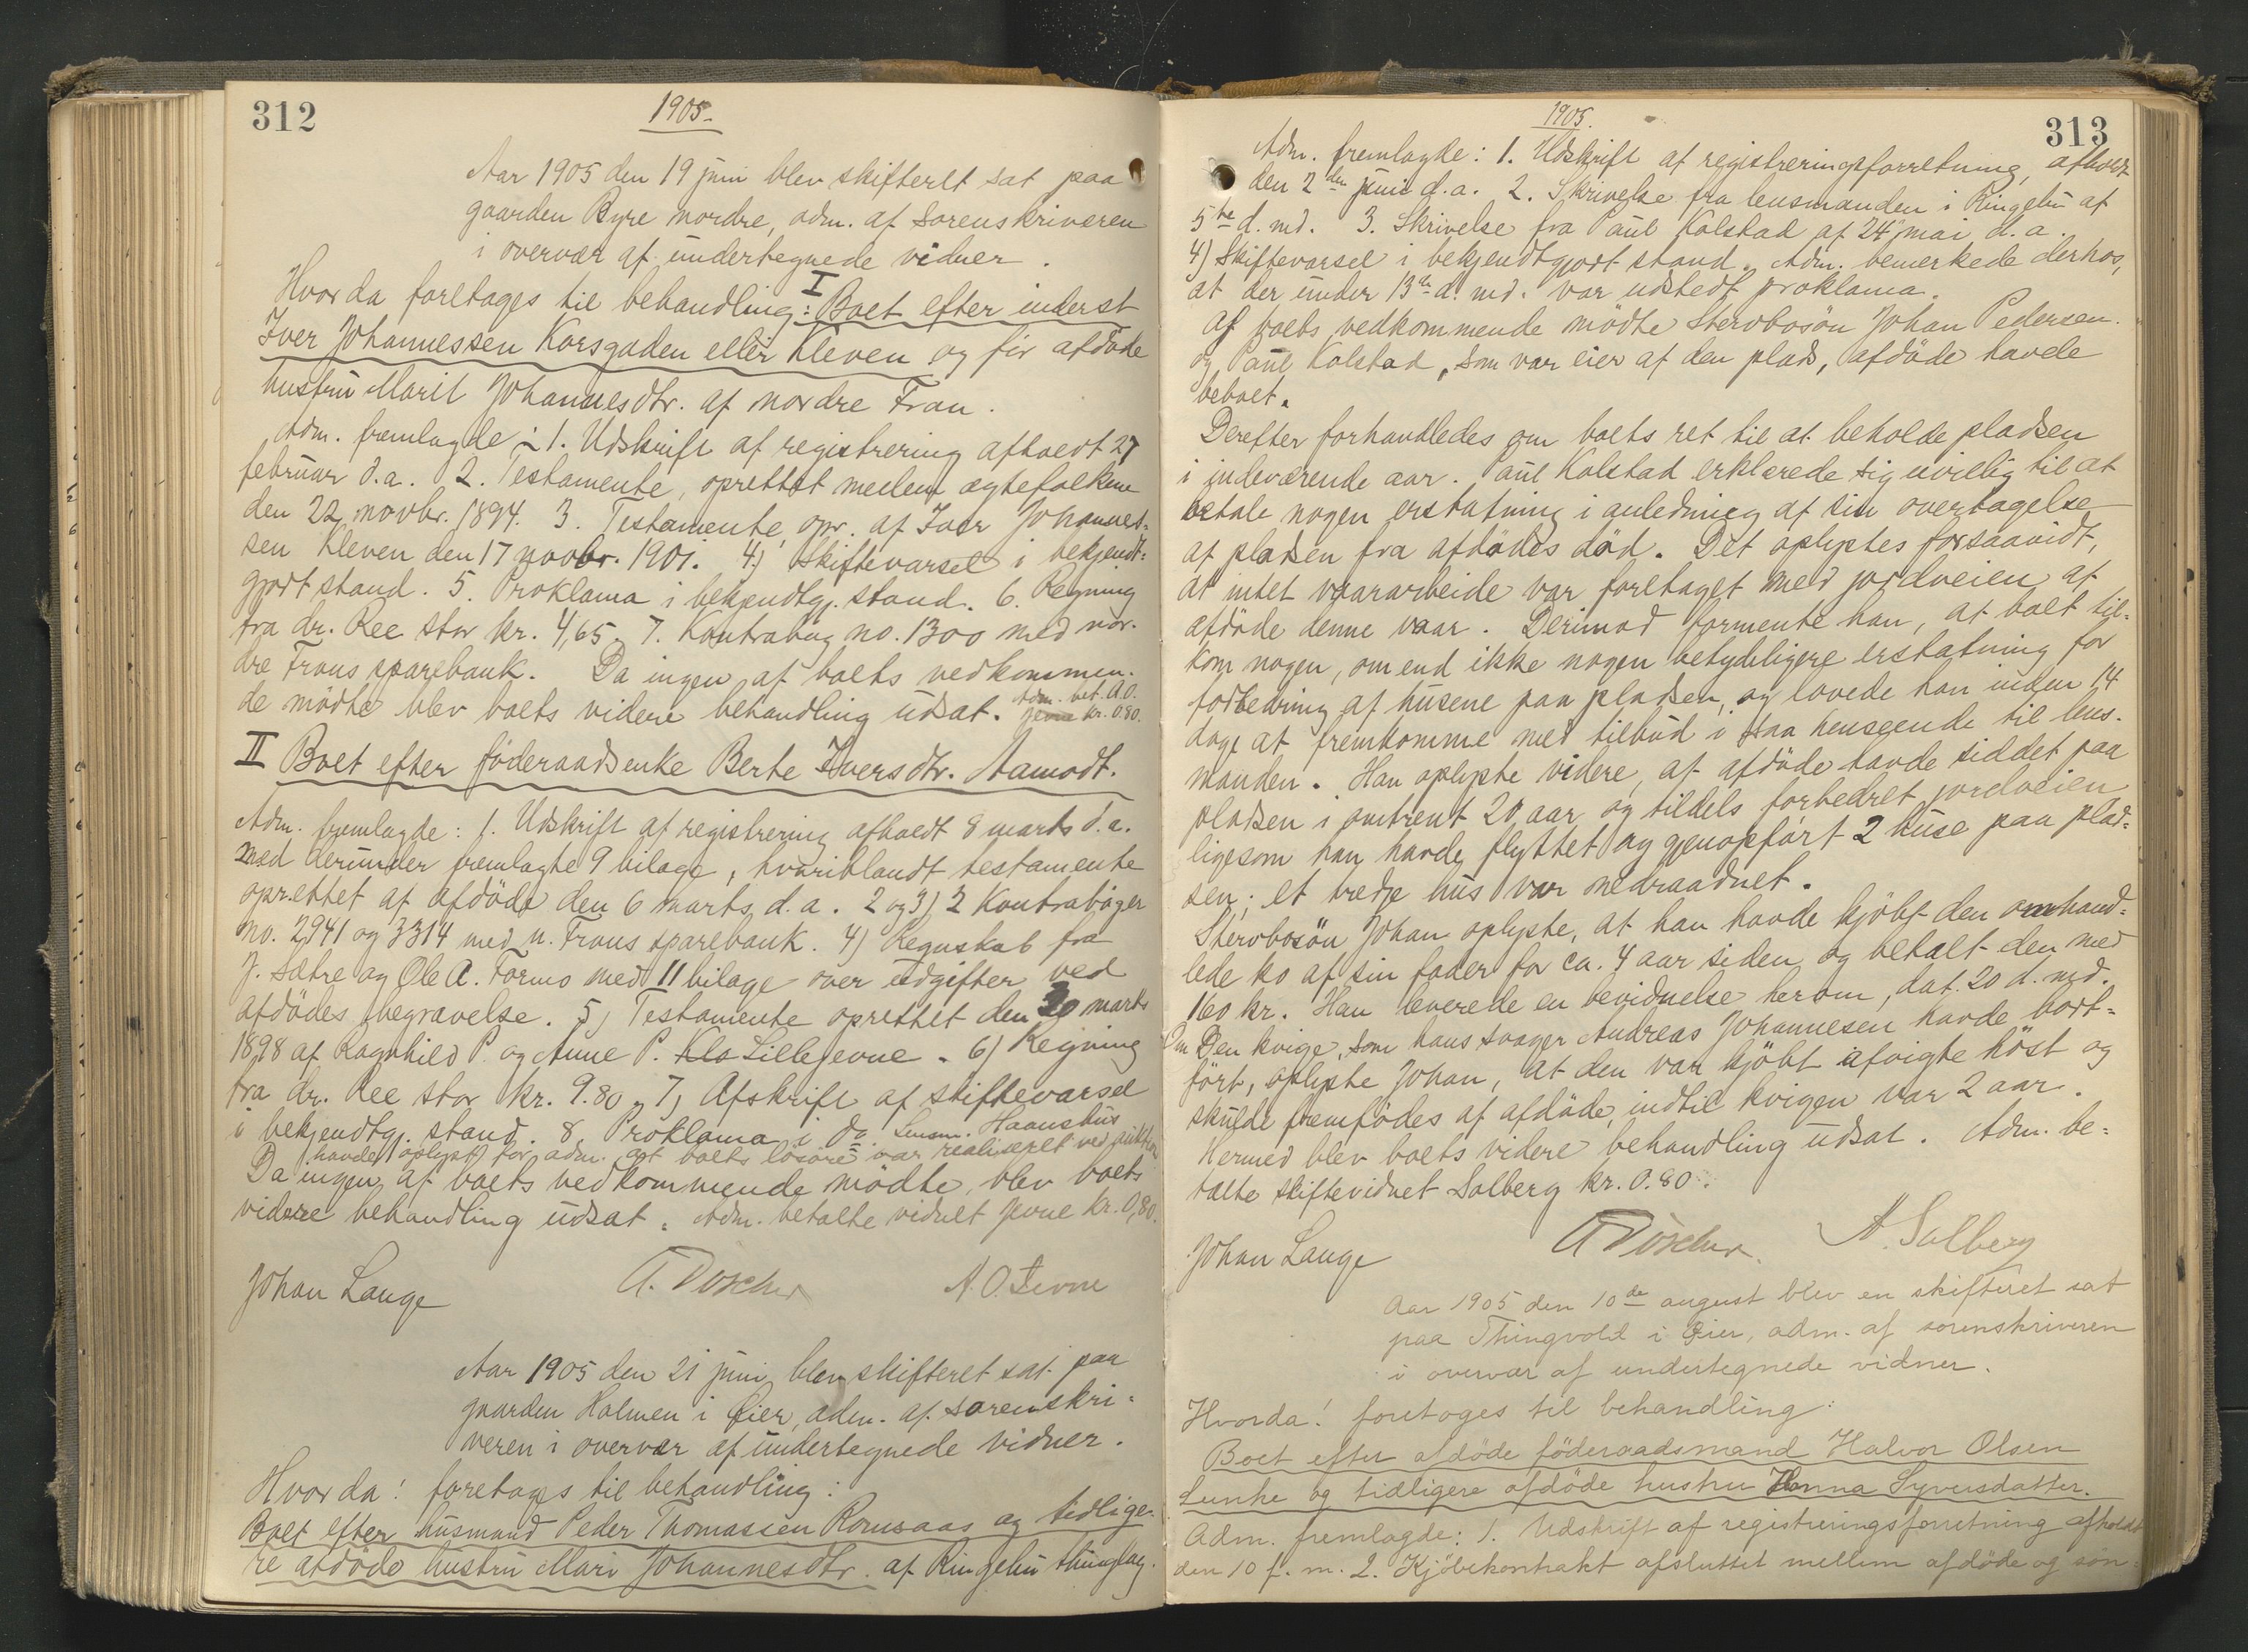 312
1905.
Aar 1905 den 19 juni blev skifteret sat paa
gaarden Byre nordre, adm. af sorenskriveren
i overvær af undertegnede vidner.
Hvorda foretages til behandling: I Boet efter inderst
Iver Johannessen Korsgaden eller Kleven og før afdøde
hustru Marit Johannesdtr. af nordre Fron.
Adm. fremlagde: 1. Udskrift af registrering afholdt 27
februar d.a. 2. Testamente, oprettet mellem ægtefolkene
den 22 novbr. 1894. 3. Testamente opr. af Iver Johannes-
sen Kleven den 17 novbr. 1901. 4) Skiftevarsel i bekjendt-
gjort stand. 5. Proklama i bekjendtgj. stand. 6. Regning
fra dr. Ree stor kr. 4,65. 7. Kontrabog no. 1300 med nor-
dre Frons sparebank. Da ingen af boets vedkommen-
de mødte blev boets videre behandling udsat. Adm. bet. A.O.
Jevne kr. 0.80.
II Boet efter föderaadsenke Berte Iversdtr. Aamodt.
Adm. fremlagde: 1. Udskrift af registrering afholdt 8 marts d.a.
med derunder fremlagte 9 bilage, hvoriblandt testamente
oprettet af afdöde den 6 marts d.a. 2 og 3) 2 Kontraböger
no. 2941 og 3314 med n. Frons sparebank. 4) Regnskab fra
J. Sætre og Ole A. Formo med 11 bilage over udgifter ved
afdödes begravelse. 5) Testamente oprettet den 30 marts
1898 af Ragnhild P. og Anne P. Kla Lillejevne. 6) Regning
fra dr. Ree stor kr. 9.80. 7) Afskrift af skiftevarsel
i bekjendtgj. stand. 8. Proklama i do. Lensm. Haanshus
havde oplyst for adm. at boets lösöre var realiseret ved auktion
Da ingen af boets vedkommende mödte, blev boets
videre behandling udsat. Adm. betalte vidnet Jevne kr. 0,80.
Johan Lange A. Döscher A. O. Jevne
Aar 1905 den 21 juni blev skifteret sat paa
gaarden Holmen i Öier, adm. af sorenskri-
veren i overvær af undertegnede vidner.
Hvorda! foretages til behandling:
Boet efter husmand Peder Thomassen Romsaas og tidlige-
re afdöde hustru Mari Johannesdtr. af Ringebu thinglag.
313
1905.
Adm. fremlagde: 1. Udskrift af registreringsforretning, afholdt
den 2den juni d.a. 2. Skrivelse fra lensmanden i Ringebu af
5te d. md. 3. Skrivelse fra Paul Kolstad af 24 mai d.a.
4) Skiftevarsel i bekjendtgjort stand. Adm. bemerkede derhos,
at der under 13de d. md. var udstedt proklama.
Af boets vedkommende mödte Stervbosön Johan Pedersen
og Paul Kolstad, som var eier af den plads, afdöde havde
beboet.
Derefter forhandledes om boets ret til at beholde pladsen
i indeværende aar. Paul Kolstad erklærede sig uvillig til at
betale nogen erstatning i anledning af sin overtagelse
af pladsen fra afdödes död. Det oplystes forsaavidt,
at intet vaararbeide var foretaget med jordveien af
afdöde denne vaar. Derimod formente han, at boet til-
kom nogen, om end ikke nogen betydeligere erstatning for
forbedring af husene paa pladsen, og lovede han inden 14
dage at fremkomme med tilbud i saa henseende til lens-
manden. Han oplyste videre, at afdöde havde siddet paa
pladsen i omtrent 20 aar og tildels forbedret jordveien
ligesom han havde flyttet og gjenopfört 2 huse paa plad-
sen; et tredje hus var nedraadnet.
Stervbosön Johan oplyste, at han havde kjöbt den omhand-
lede ko af sin fader for ca. 4 aar siden og betalt den med
160 kr. Han leverede en bevidnelse herom, dat. 20 d. md.
Om Den kvige, som hans svoger Andreas Johannesen havde bort-
fört, oplyste Johan, at den var kjöbt afvigte höst og
skulde fremfödes af afdöde, indtil kvigen var 2 aar.
Hermed blev boets videre behandling udsat. Adm. be-
talte skiftevidnet Solberg kr. 0.80.
Johan Lange A Döscher A. Solberg
Aar 1905 den 10de august blev en skifteret sat
paa Thingvold i Öier, adm. af sorenskriveren
i overvær af undertegnede vidner.
Hvorda! foretoges til behandling:
Boet efter afdöde föderaadsmand Halvor Olsen
Lunke og tidligere afdöde hustru Hanna Syversdatter.
Adm. fremlagde: 1. Udskrift af registreringsforretning afholdt
den 10 f. m. 2. Kjöbekontrakt afsluttet mellem afdöde og søn-